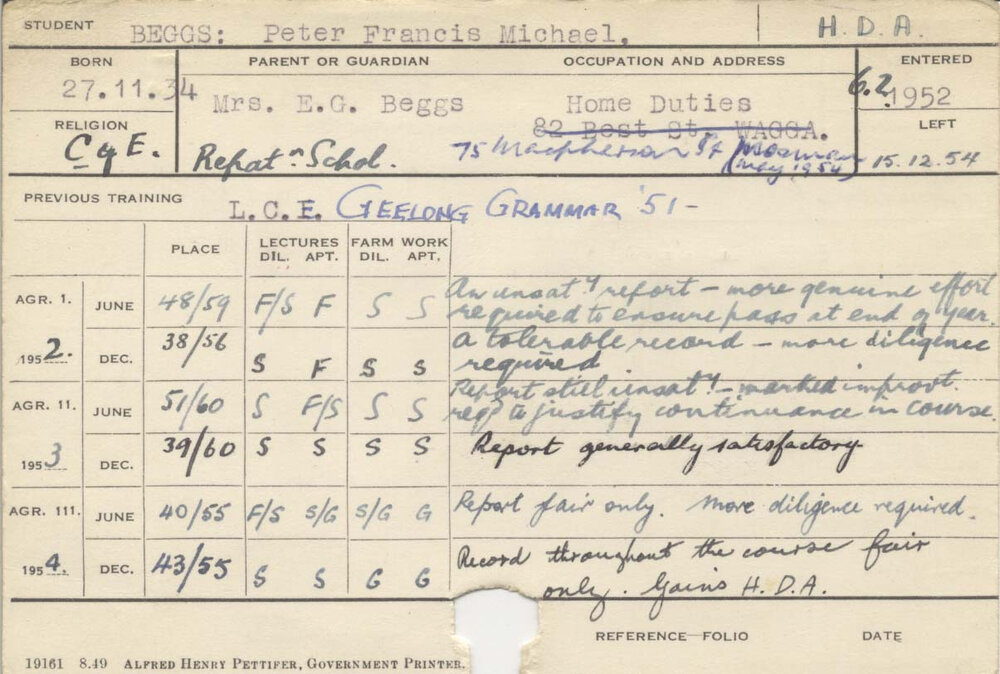 STUDENT BEGGS: Peter Francis Michael, H.D.A.
BORN PARENT OR GUARDIAN OCCUPATION AND ADDRESS ENTERED
27.11.34 Mrs. E.G. Beggs Home Duties 6.2.1952
RELIGION 82 Best St. WAGGA. LEFT
C of E. Repatn Schol. 75 Macpherson St Mosman 15.12.54
(May 1954)
PREVIOUS TRAINING L.C.E. GEELONG GRAMMAR '51-
PLACE LECTURES FARM WORK
DIL. APT. DIL. APT.
AGR. 1. JUNE 48/59 F/S F S S An unsaty report - more genuine effort
required to ensure pass at end of year.
1952. DEC. 38/56 S F S S A tolerable record - more diligence
required
AGR. 11. JUNE 51/60 S F/S S S Report still unsaty - marked improvt.
reqd to justify continuance in course.
1953 DEC. 39/60 S S S S Report generally satisfactory
AGR. 111. JUNE 40/55 F/S S/G S/G G Report fair only. More diligence required.
1954. DEC. 43/55 S S G G Record throughout the course fair
only. Gains H.D.A.
REFERENCE FOLIO DATE
19161 8.49 ALFRED HENRY PETTIFER, GOVERNMENT PRINTER.